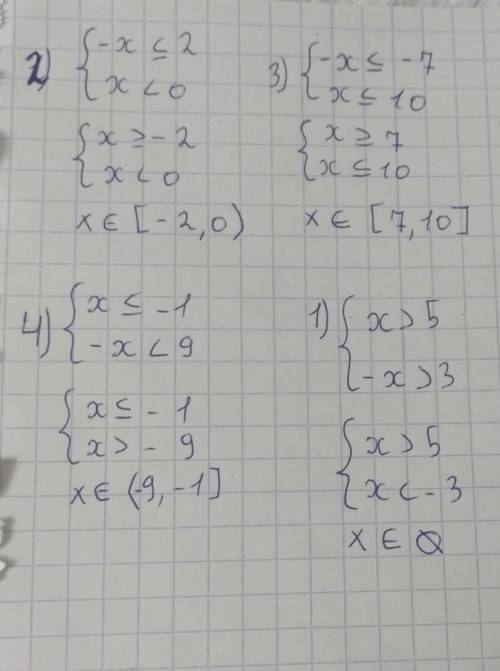 2) { -x ≤ 2
x < 0
{ x ≥ -2
x < 0
x ∈ [-2, 0)
3) { -x ≤ -7
x ≤ 10
{ x ≥ 7
x ≤ 10
x ∈ [7, 10]
4) { x ≤ -1
-x < 9
{ x ≤ -1
x > -9
x ∈ (-9, -1]
1) { x > 5
-x > 3
{ x > 5
x < -3
x ∈ ∅